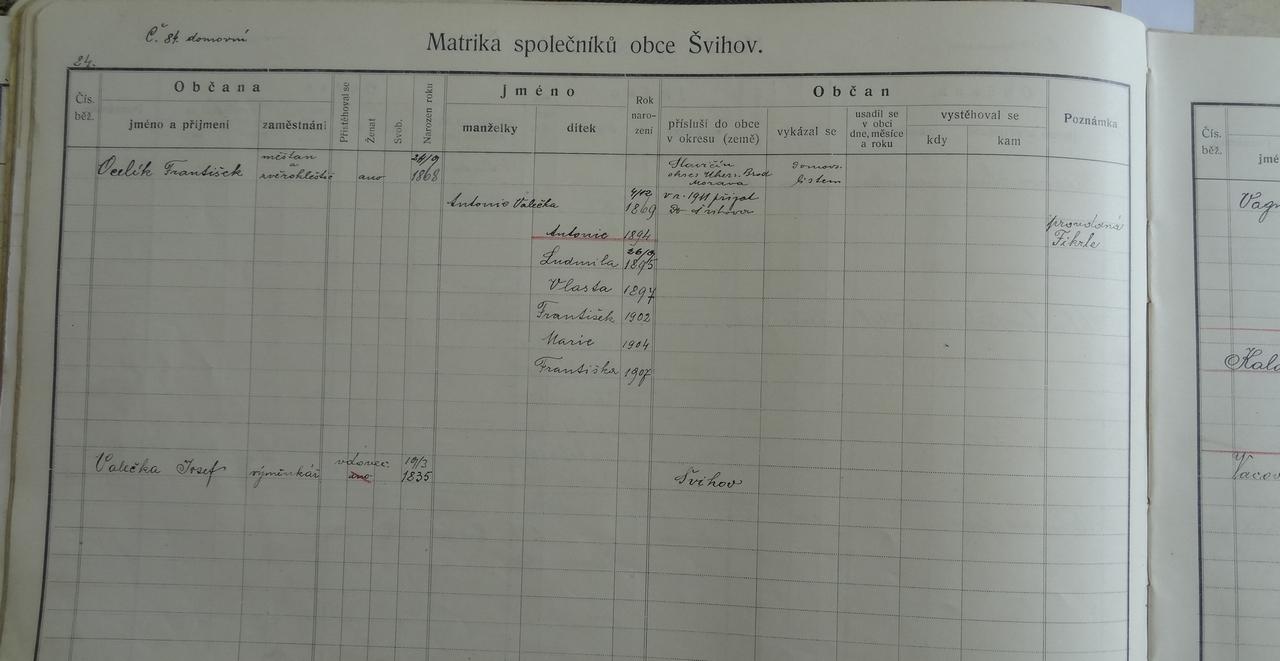 Č. 84. domovní
84.
Matrika společníků obce Švihov.
Čís. běž.
Občana
jméno a příjmení
zaměstnání
Přistěhoval se
Ženat
Svob.
Narozen roku
Jméno
manželky
dítek
Rok
naro-
zení
Občan
přísluší do obce
v okresu (země)
vykázal se
usadil se
v obci
dne, měsíce
a roku
vystěhoval se
kdy
kam
Poznámka
Ocelík František
měšťan
a
zvěrokleštič
ano
24/9
1868
Slavičín
okres Uhers. Brod
Morava
domovs.
listem
Antonie Valečka
4/12
1869
v r. 1911 přijat
do Švihova
Antonie 1894
provdaná
Fikrle
Ludmila 26/9 1895
Vlasta 1897
František 1902
Marie 1904
Františka 1907
Valečka Josef
výměnkář
vdovec.
ano
19/3
1835
Švihov
Čís.
běž.
jmé
Vag
Kala
Vacov